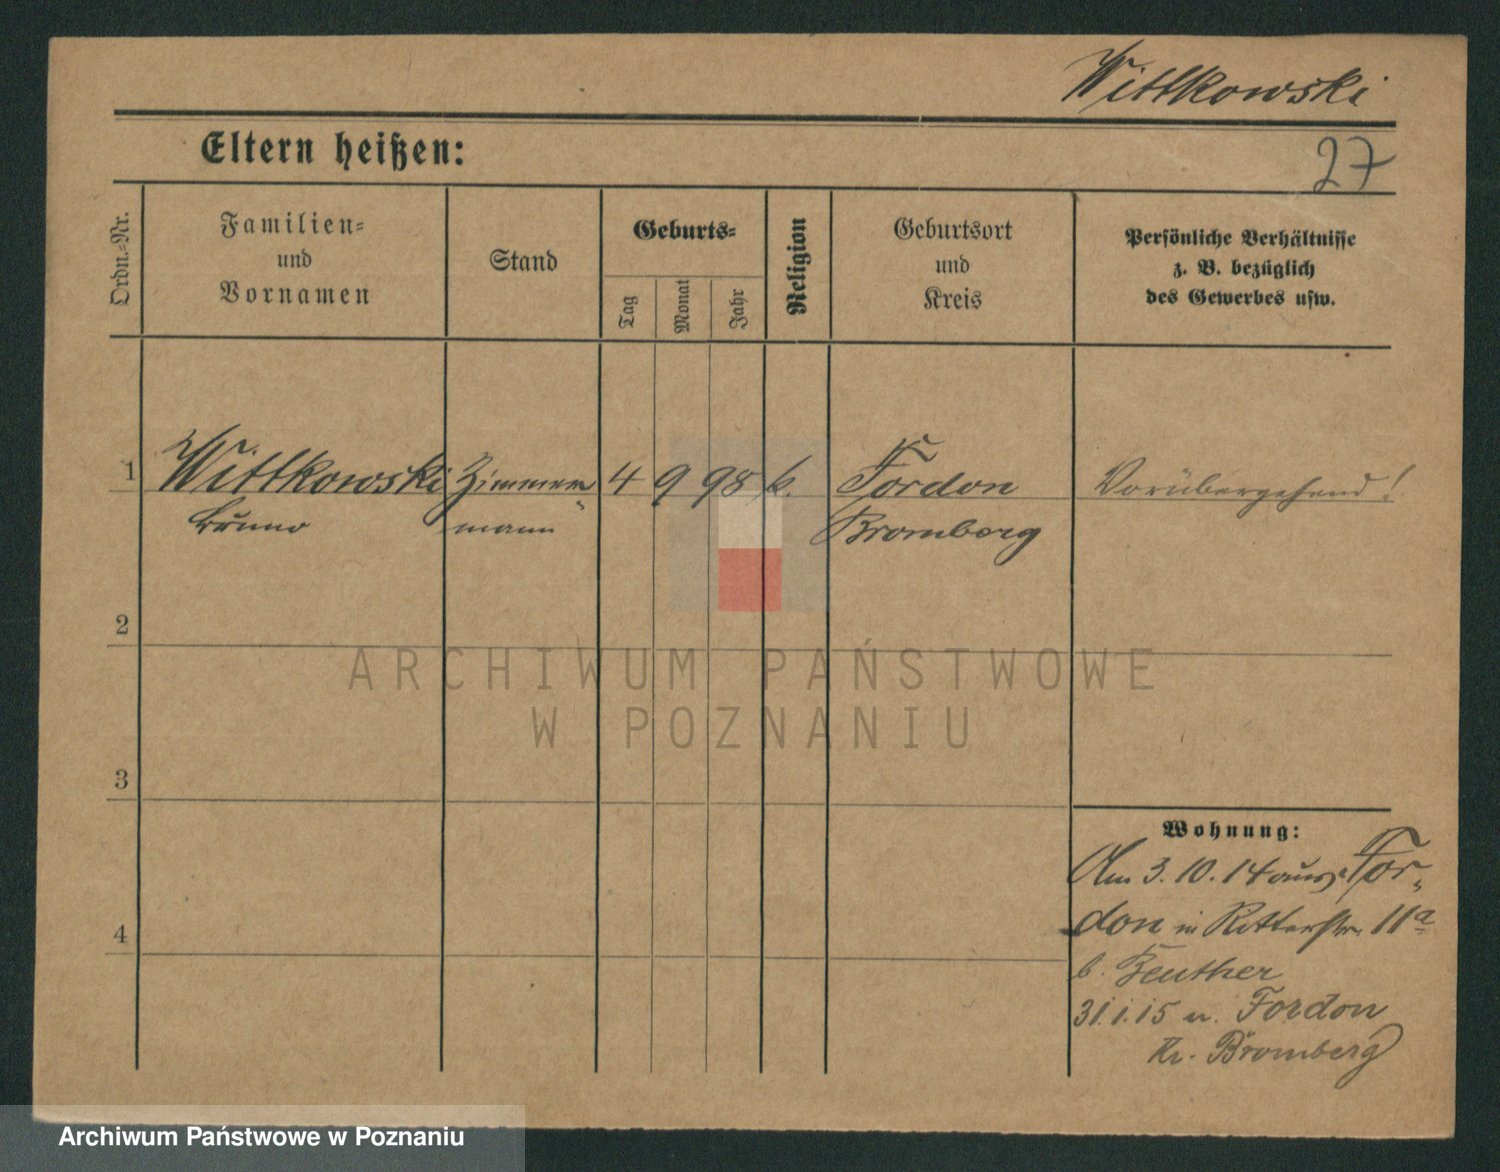 Wittkowski
Eltern heißen:
27
Ordn.-Nr.
Familien-
und
Vornamen
Stand
Geburts-
Tag
Monat
Jahr
Religion
Geburtsort
und
Kreis
Persönliche Verhältnisse
z. B. bezüglich
des Gewerbes usw.
1 Wittkowski Zimmer- 4 9 98 k. Fordon Vorübergehend!
Bruno mann Bromberg
2
3
4
Wohnung:
Am 3.10.14 For-
don in Ritterstr. 11a
b. Beuther
31.1.15 n. Fordon
Kr. Bromberg
ARCHIWUM PAŃSTWOWE
W POZNANIU
Archiwum Państwowe w Poznaniu